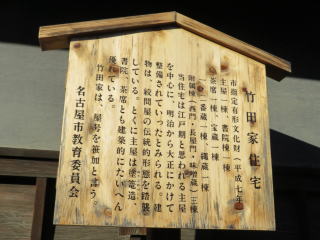 竹田家住宅
市指定有形文化財 平成七年
主屋一棟、書院棟一棟
茶席一棟、宝蔵一棟
一、二番蔵一棟、縄蔵一棟
附属棟(西門・長屋門・味噌蔵)三棟
当住宅は江戸期と思われる主屋
を中心に、明治から大正にかけて
整備されていったとみられる。建
物は、絞問屋の伝統的形態を踏襲
している。とくに主屋は塗篭造、
書院、茶席とも建築的にたいへん
優れている。
竹田家は、屋号を笹加と言う。
名古屋市教育委員会